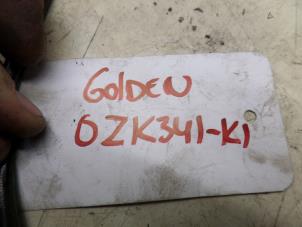 GOLDEN
OZK341-K1